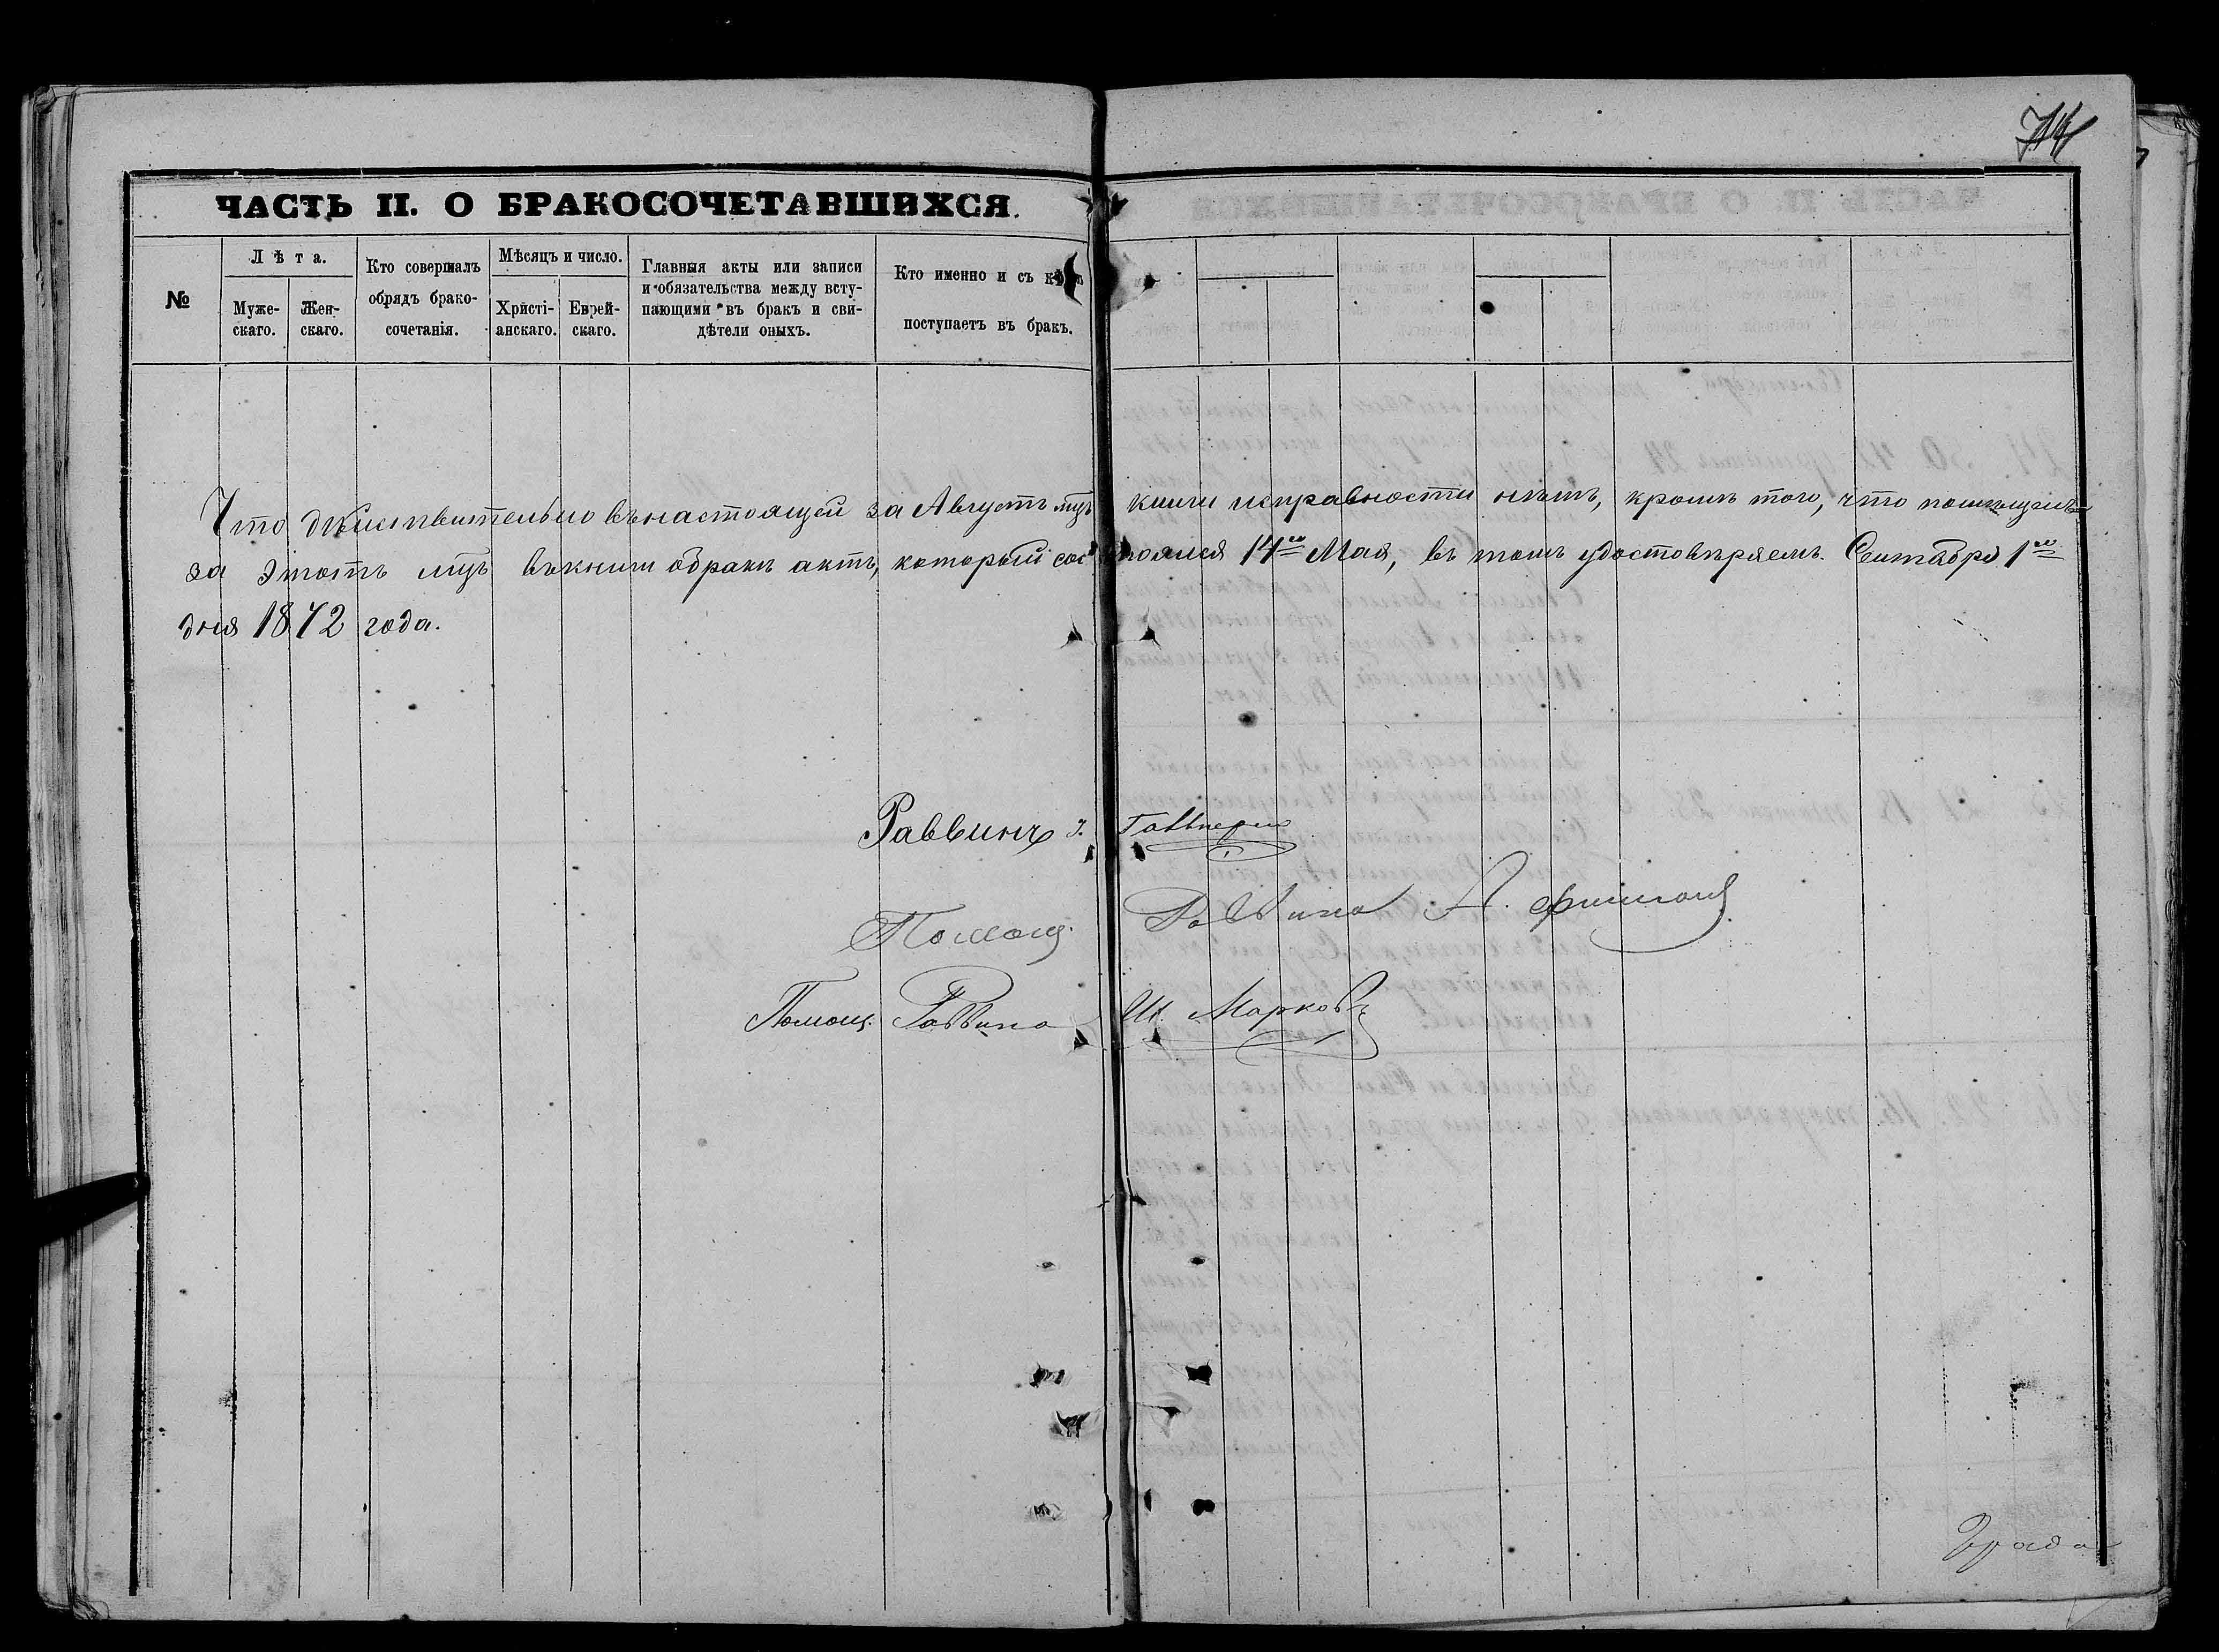 ЧАСТЬ II. О БРАКОСОЧЕТАВШИХСЯ.
№
Лѣта.
Муже-
скаго.
Жен-
скаго.
Кто совершалъ
обрядъ брако-
сочетанія.
Мѣсяцъ и число.
Христі-
анскаго.
Еврей-
скаго.
Главныя акты или записи
и обязательства между всту-
пающими въ бракъ и сви-
дѣтели оныхъ.
Кто именно и съ кѣмъ
поступаетъ въ бракъ.
Что дѣйствительно въ настоящей за Августъ мцъ книги исправности нѣтъ, кромѣ того, что помѣщенъ
за этотъ мцъ въ книги о бракъ актъ, который состоялся 14го Мая, въ томъ удостовѣряемъ. Сентября 1го
дня 1872 года.
Раввинъ
Помощ. Раввина А. Фишманъ
Помощ. Раввина Ш. Марковъ